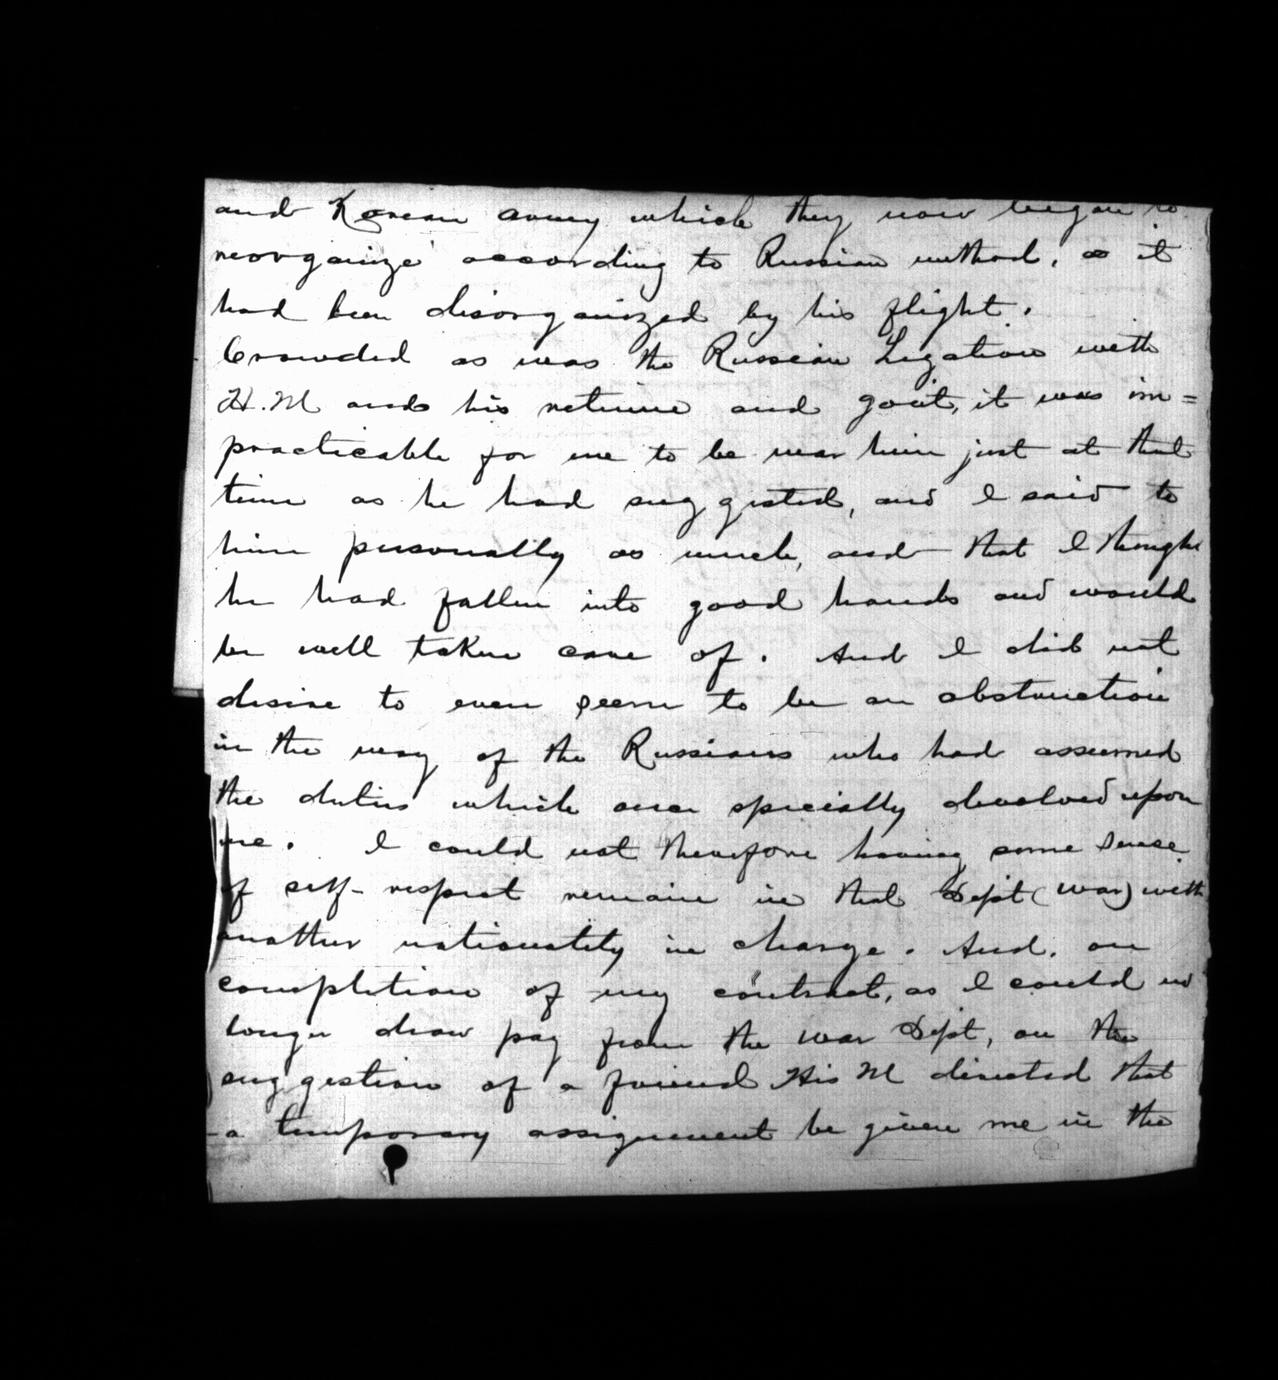 and Korean army which they now began to
reorganize according to Russian method, as it
had been disorganized by his flight.
Crowded as was the Russian Legation with
H.M and his retinue and gov't, it was im=
practicable for me to be near him just at that
time as he had suggested, and I said to
him personally as much, and that I thought
he had fallen into good hands and would
be well taken care of. And I did not
desire to even seem to be an obstruction
in the way of the Russians who had assumed
the duties which once specially devolved upon
me. I could not therefore having some sense
of self-respect remain in that Dept (War) with
another nationality in charge. And, on
completion of my contract, as I could no
longer draw pay from the War Dept, on the
suggestion of a friend His M directed that
a temporary assignment be given me in the